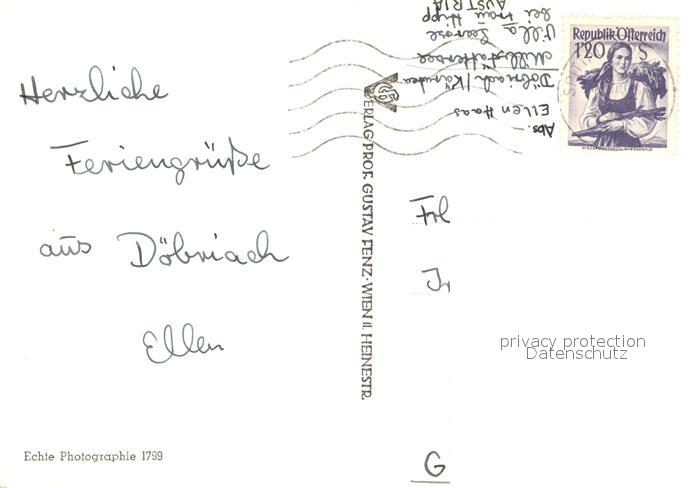 Herzliche
Feriengrüße
aus Döbriach
Ellen
Echte Photographie 1799
VERLAG PROF. GUSTAV FENZ · WIEN II. HEINESTR.
Abs.
Ellen Haas
Döbriach/Kärnten
Millstättersee
Villa Seerose
bei Frau Hipp
AUSTRIA
Republik Österreich
1'20 S
Frl
G
privacy protection
Datenschutz